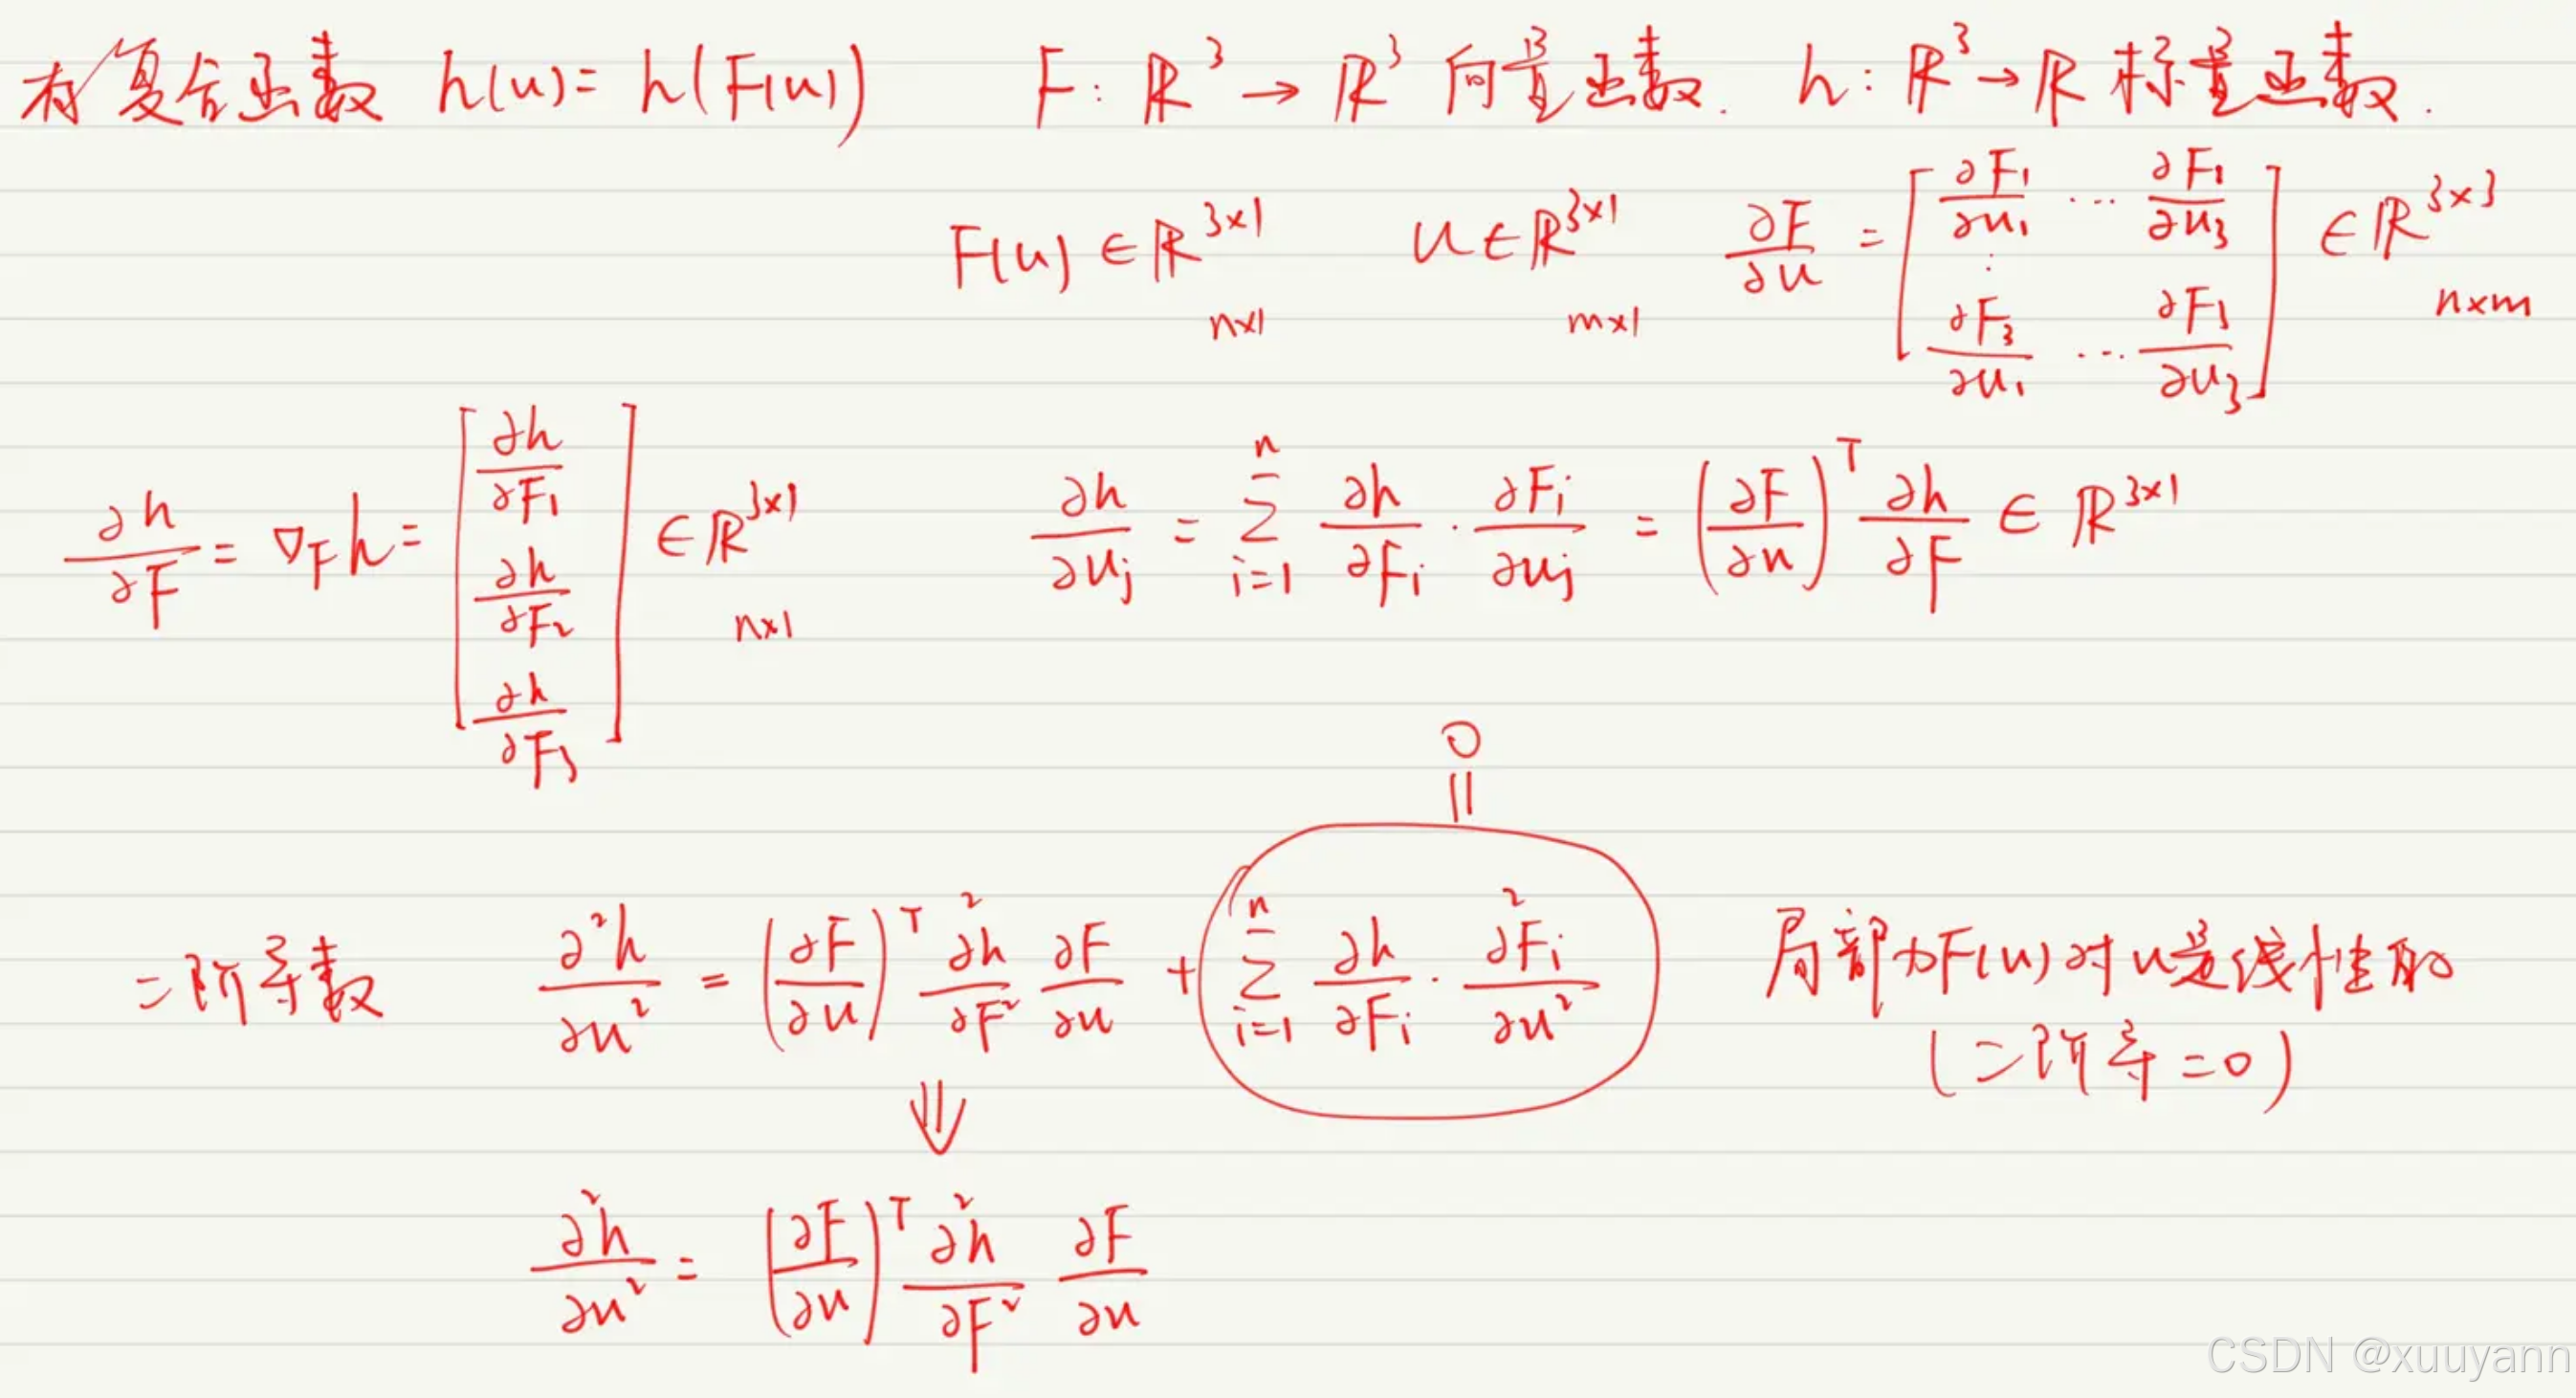 有复合函数 h(u) = h(F(u))   F: ℝ³ → ℝ³ 向量函数. h: ℝ³ → ℝ 标量函数.
F(u) ∈ ℝ^{3×1}   u ∈ ℝ^{3×1}   ∂F/∂u = [∂F₁/∂u₁ ⋯ ∂F₁/∂u₃ ; ⋮ ; ∂F₃/∂u₁ ⋯ ∂F₃/∂u₃] ∈ ℝ^{3×3}
n×1   m×1   n×m
∂h/∂F = ∇_F h = [∂h/∂F₁ ; ∂h/∂F₂ ; ∂h/∂F₃] ∈ ℝ^{3×1}   ∂h/∂u_j = Σ_{i=1}^{n} ∂h/∂F_i · ∂F_i/∂u_j = (∂F/∂u)^T ∂h/∂F ∈ ℝ^{3×1}
n×1
0
||
二阶导数   ∂²h/∂u² = (∂F/∂u)^T ∂²h/∂F² ∂F/∂u + Σ_{i=1}^{n} ∂h/∂F_i · ∂²F_i/∂u²   局部为F(u)对u是线性的
(二阶导=0)
⇓
∂²h/∂u² = (∂F/∂u)^T ∂²h/∂F² ∂F/∂u
CSDN @xuuyann